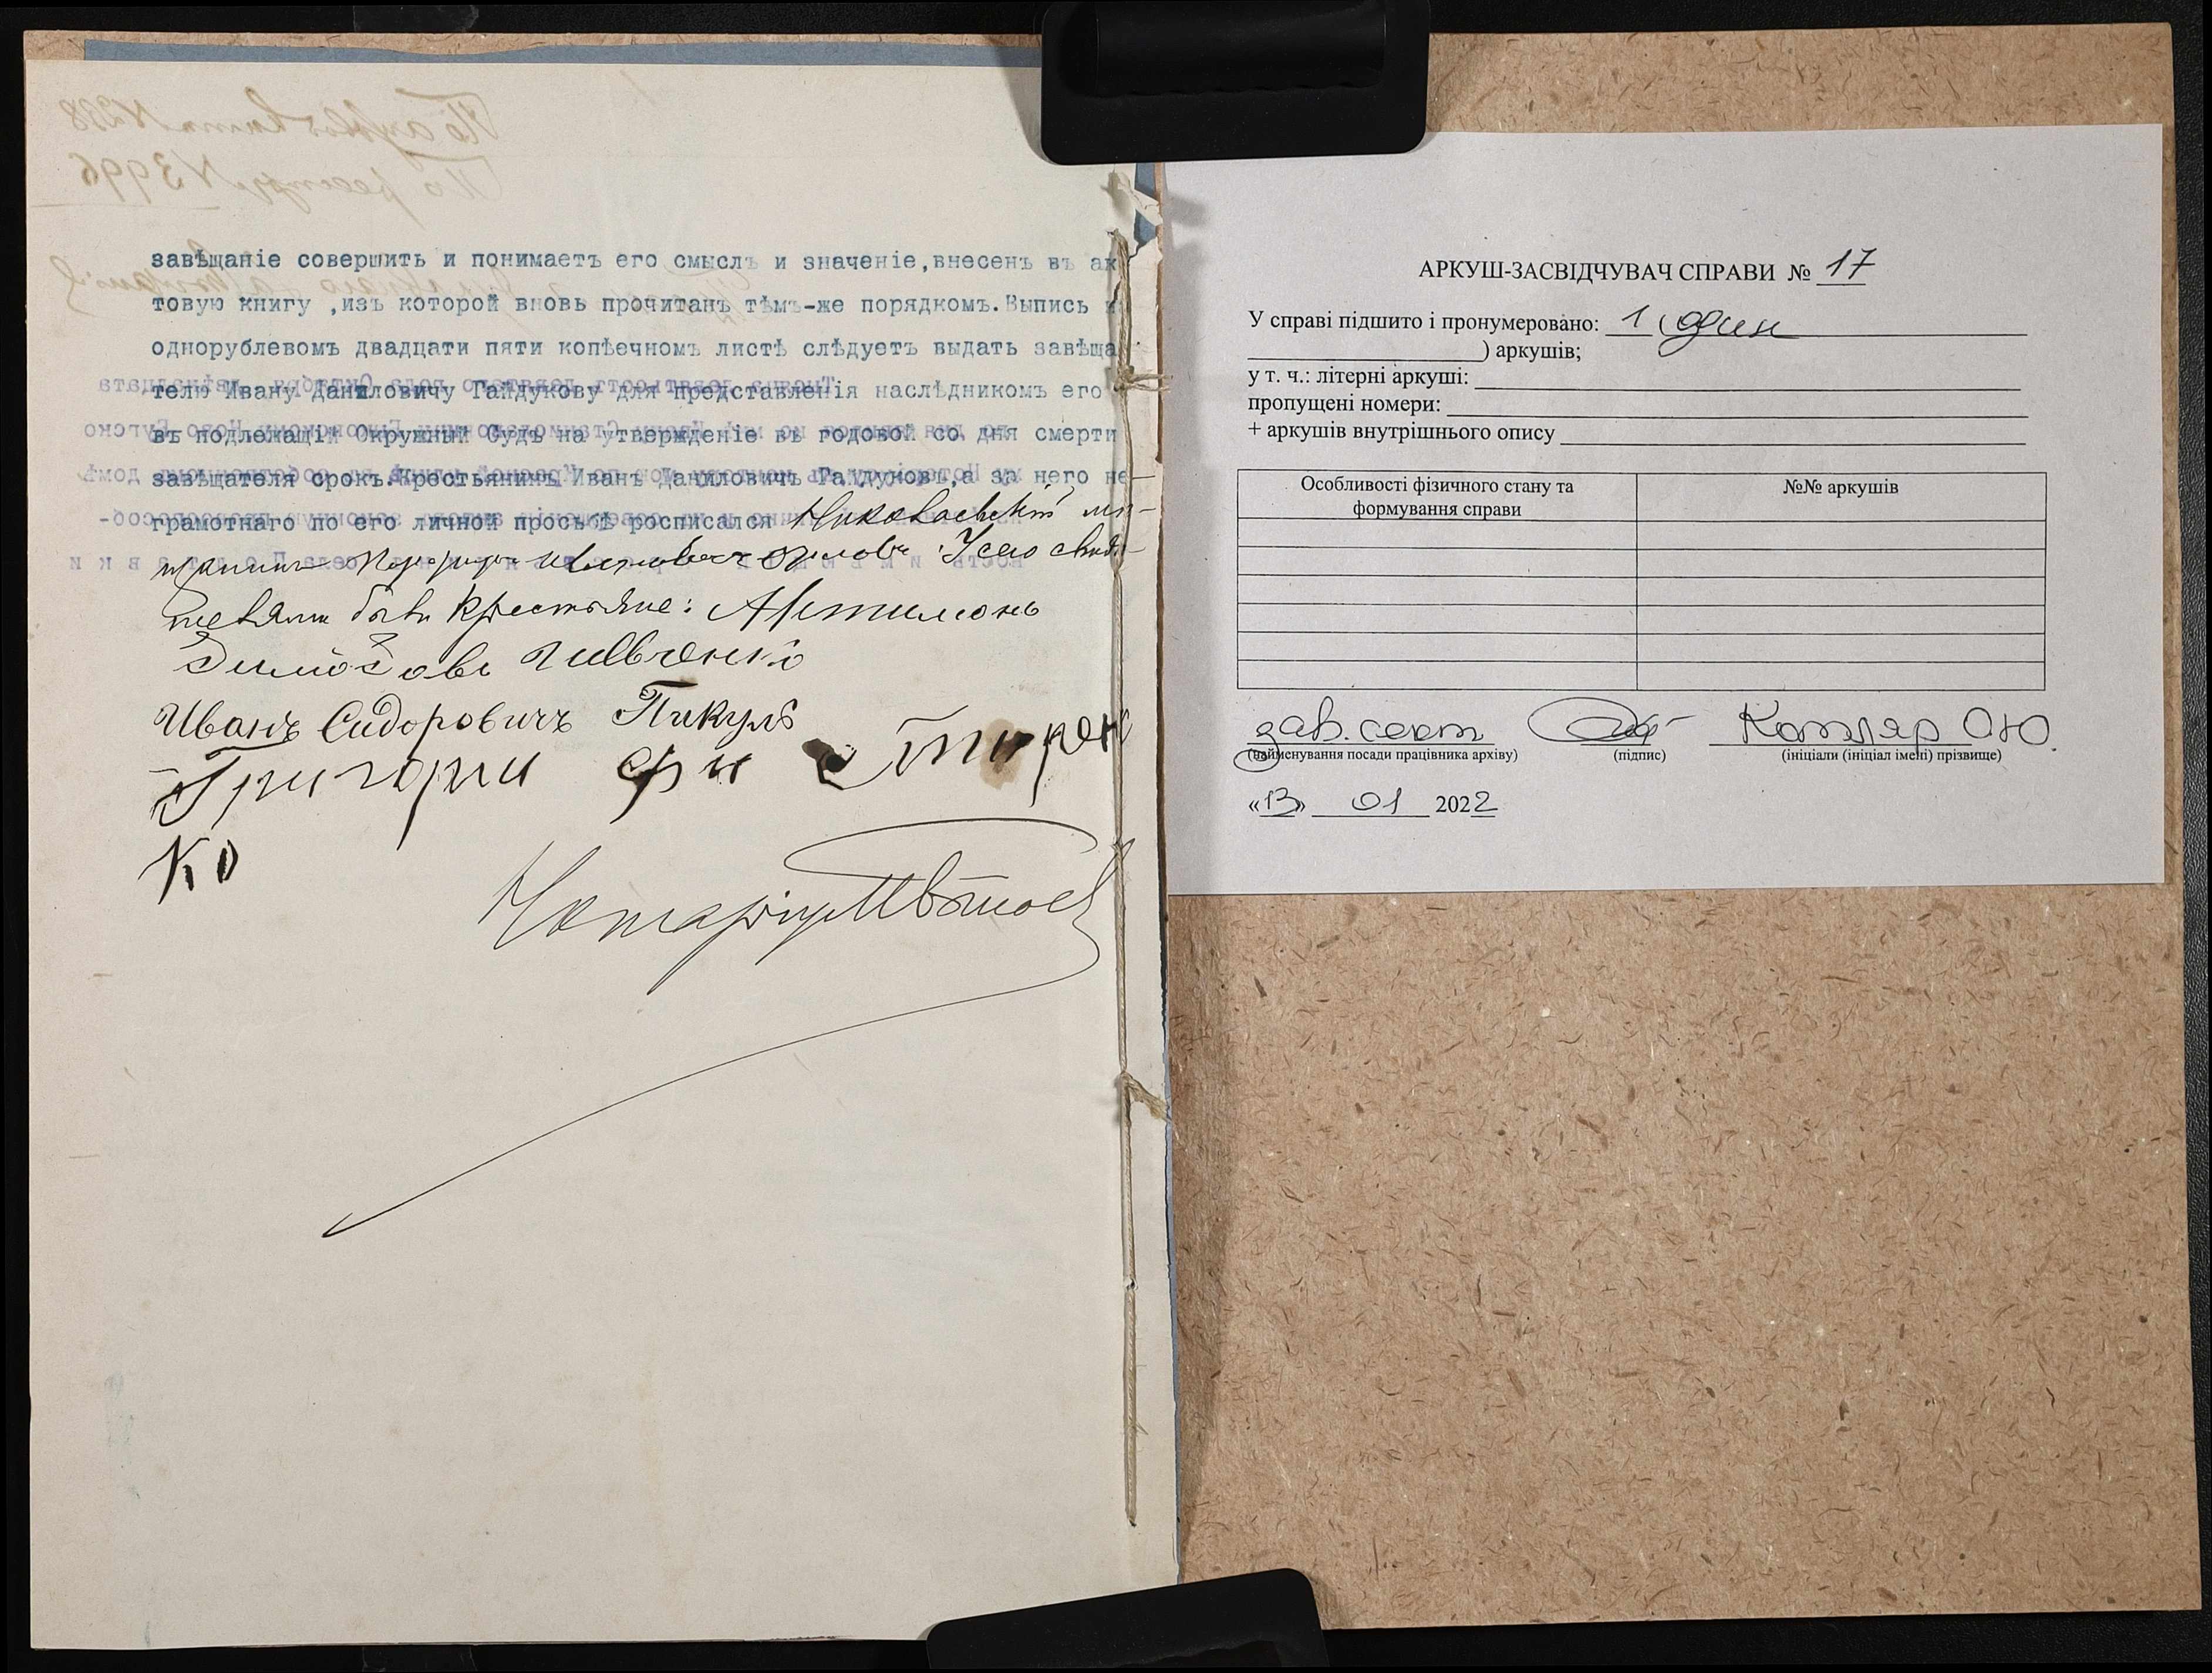 завѣщаніе совершить и понимаетъ его смыслъ и значеніе,внесенъ въ ак
товую книгу ,изъ которой вновь прочитанъ тѣмъ-же порядкомъ.Выпись н
однорублевомъ двадцати пяти копѣечномъ листѣ слѣдуетъ выдать завѣща
телю Ивану Даниловичу Гайдукову для представленія наслѣдникомъ его
въ подлежащій Окружный Судъ на утвержденіе въ годовой со дня смерти
завѣщателя срокъ.Крестьянинъ Иванъ Даниловичъ Гайдуковъ,а за него не-
грамотнаго по его личной просьбѣ росписался Николаевскій мѣ-
щанинъ Ивановичъ Орловъ У сего свидѣ-
телями были крестьяне: Артимонъ
Шевченко
Иванъ Сидоровичъ Пикуль
Григори
ко
Нотаріусъ
АРКУШ-ЗАСВІДЧУВАЧ СПРАВИ № 17
У справі підшито і пронумеровано: 1 (один
) аркушів;
у т. ч.: літерні аркуші:
пропущені номери:
+ аркушів внутрішнього опису
Особливості фізичного стану та формування справи
№№ аркушів
зав. сект Котляр ОЮ.
(найменування посади працівника архіву) (підпис) (ініціали (ініціал імені) прізвище)
«13» 01 2022